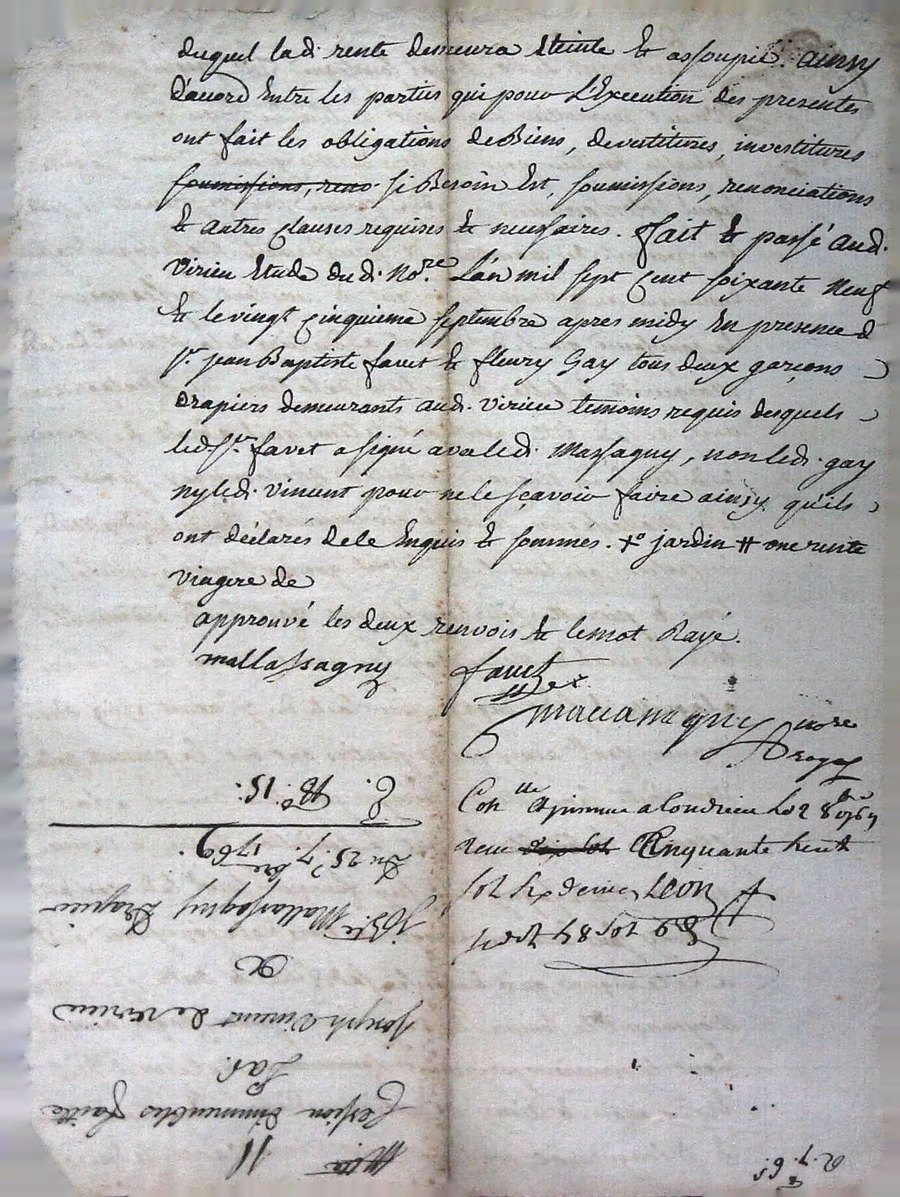 duquel lad. rente demeura éteinte et assoupie. ainsy
d'acord Entre les parties qui pour L'Execution des presentes
ont fait les obligations de Biens, devestitures, investitures
soumissions, reno. si Besoin Est, soumissions, renonciations
et autres clauses requises et necessaires. fait et passé aud.
Virieu Etude dud. No.re L'an mil sept cent soixante neuf
et le vingt cinquieme septembre apres midy En presence d
Sr. jean Baptiste favet et fleury Gay tous deux garçons
drapiers demeurants aud. Virieu temoins requis desquels
led. Sr. favet a signé avec led. Massagny, non led. gay
ny led. Vincent pour ne le sçavoir faire ainsy qu'ils
ont déclarés de ce Enquis et sommés. +o jardin # une rente
viagere de
approuvé les deux renvois et le mot Rayé.
mallassagny favet
nore
Con.lle a Condrieu le 2 8bre 1769
receu Cinquante huit
sols six deniers
58 sols 6 d
Cession d'immeubles faitte
Par
joseph Vincent de Virieu
a
Mallassagny Drapier
Du 25. 7.bre 1769.